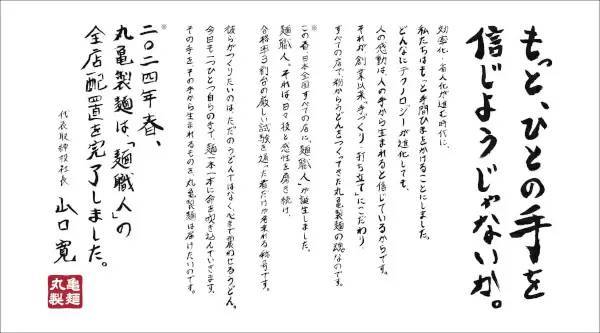 もっと、ひとの手を
信じようじゃないか。
効率化・省人化が進む時代に、
私たちはもっと手間ひまをかけることにしました。
どんなにテクノロジーが進化しても、
人の感動は、人の手から生まれると信じているからです。
それが創業以来、“手づくり・打ち立て”にこだわり
すべての店で粉からうどんをつくってきた丸亀製麺の魂なのです。
この春、日本全国すべての店に、“麺職人”が誕生しました。※
麺職人。それは、日々技と感性を磨き続け、
合格率3割台の厳しい試験を通った者だけが名乗れる称号です。
彼らがつくりたいのは、ただのうどんではなく、心まで震わせるうどん。
今日も一つひとつ自らの手で、麺一本一本に命を吹き込んでいきます。
その手を、その手から生まれるものを、丸亀製麺は届けたいのです。
二〇二四年春、※
丸亀製麺は、「麺職人」の
全店配置を完了しました。
代表取締役社長 山口寛
丸亀製麺